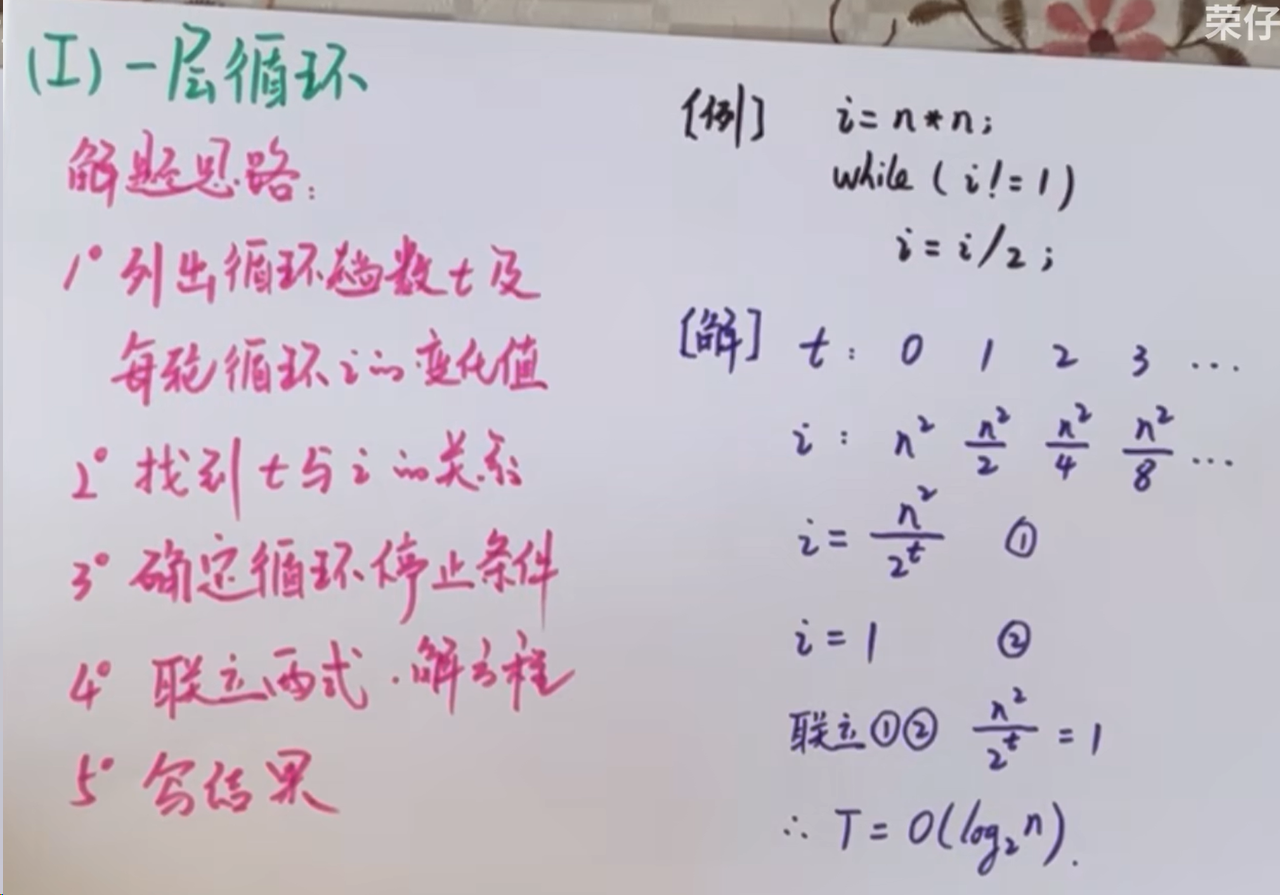 荣仔
(I) 一层循环
解题思路：
1° 列出循环趟数 t 及
每轮循环 i 的变化值
2° 找到 t 与 i 的关系
3° 确定循环停止条件
4° 联立两式，解方程
5° 写结果
[例] i = n * n;
while ( i != 1 )
i = i / 2 ;
[解] t : 0 1 2 3 …
i : n² n²/2 n²/4 n²/8 …
i = n²/2^t ①
i = 1 ②
联立①② n²/2^t = 1
∴ T = O(log₂n).